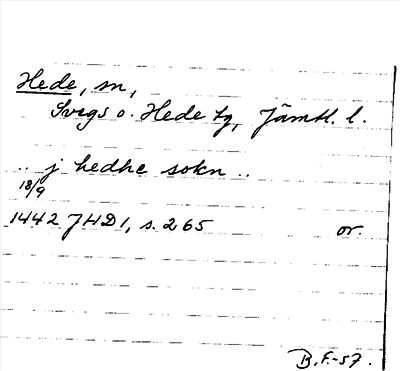 Hede, sn,
Svegs o. Hede tg, Jämtl. l.
.. j hedhe sokn ..
18/9
1442 JHD1, s. 265 or.
B.F.-57.